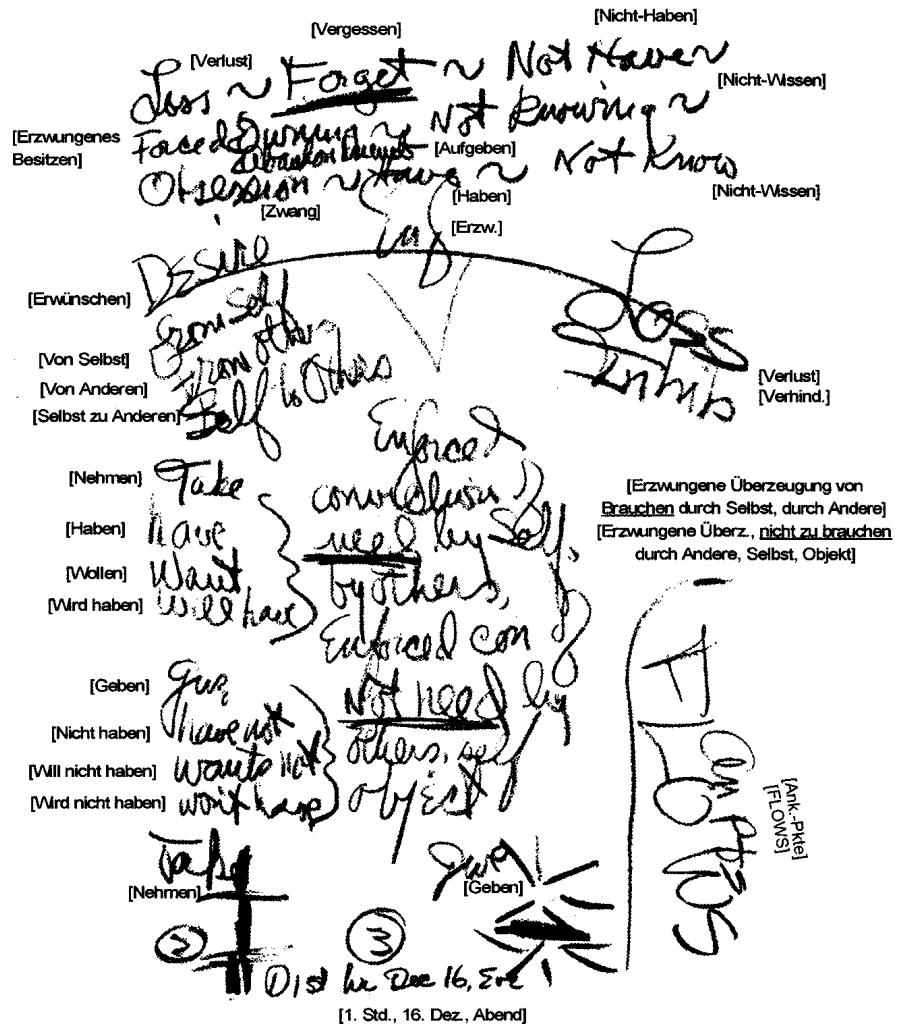 [Nicht-Haben]
[Vergessen]
[Verlust]
Loss ~ Forget ~ Not Have ~
[Nicht-Wissen]
[Erzwungenes
Besitzen]
Forced Owning ~ Not Knowing ~
abandonments
[Aufgeben]
Obsession ~ Have ~ Not Know
[Nicht-Wissen]
[Zwang]
[Haben]
Enf
[Erzw.]
Desire
[Erwünschen]
From Self
[Von Selbst]
From other
[Von Anderen]
Self to Others
[Selbst zu Anderen]
Loss
Inhib
[Verlust]
[Verhind.]
[Nehmen]
Take
[Haben]
have
[Wollen]
Want
[Wird haben]
Will have
Enforced
conviction
need by Self,
by others,
Enforced con
Not need by
others, self
object
[Erzwungene Überzeugung von
Brauchen durch Selbst, durch Andere]
[Erzwungene Überz., nicht zu brauchen
durch Andere, Selbst, Objekt]
[Geben]
Give
[Nicht haben]
have not
[Will nicht haben]
wants not
[Wird nicht haben]
won't have
FLOWS
an pts
[Ank.-Pkte]
[FLOWS]
Take
[Nehmen]
Give
[Geben]
2
3
1st hr Dec 16, Eve
[1. Std., 16. Dez., Abend]